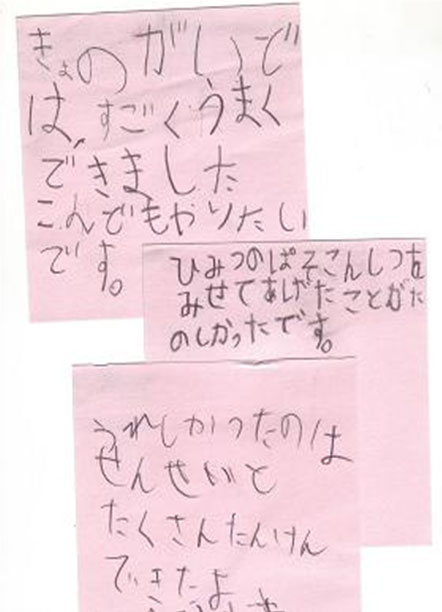 きょのがいで
は、すごくうまく
できました
こんでもやりたい
です。
ひみつのぱそこんしつを
みせてあげたことがた
のしかったです。
うれしかったのは
せんせいと
たくさんたんけん
できたよ